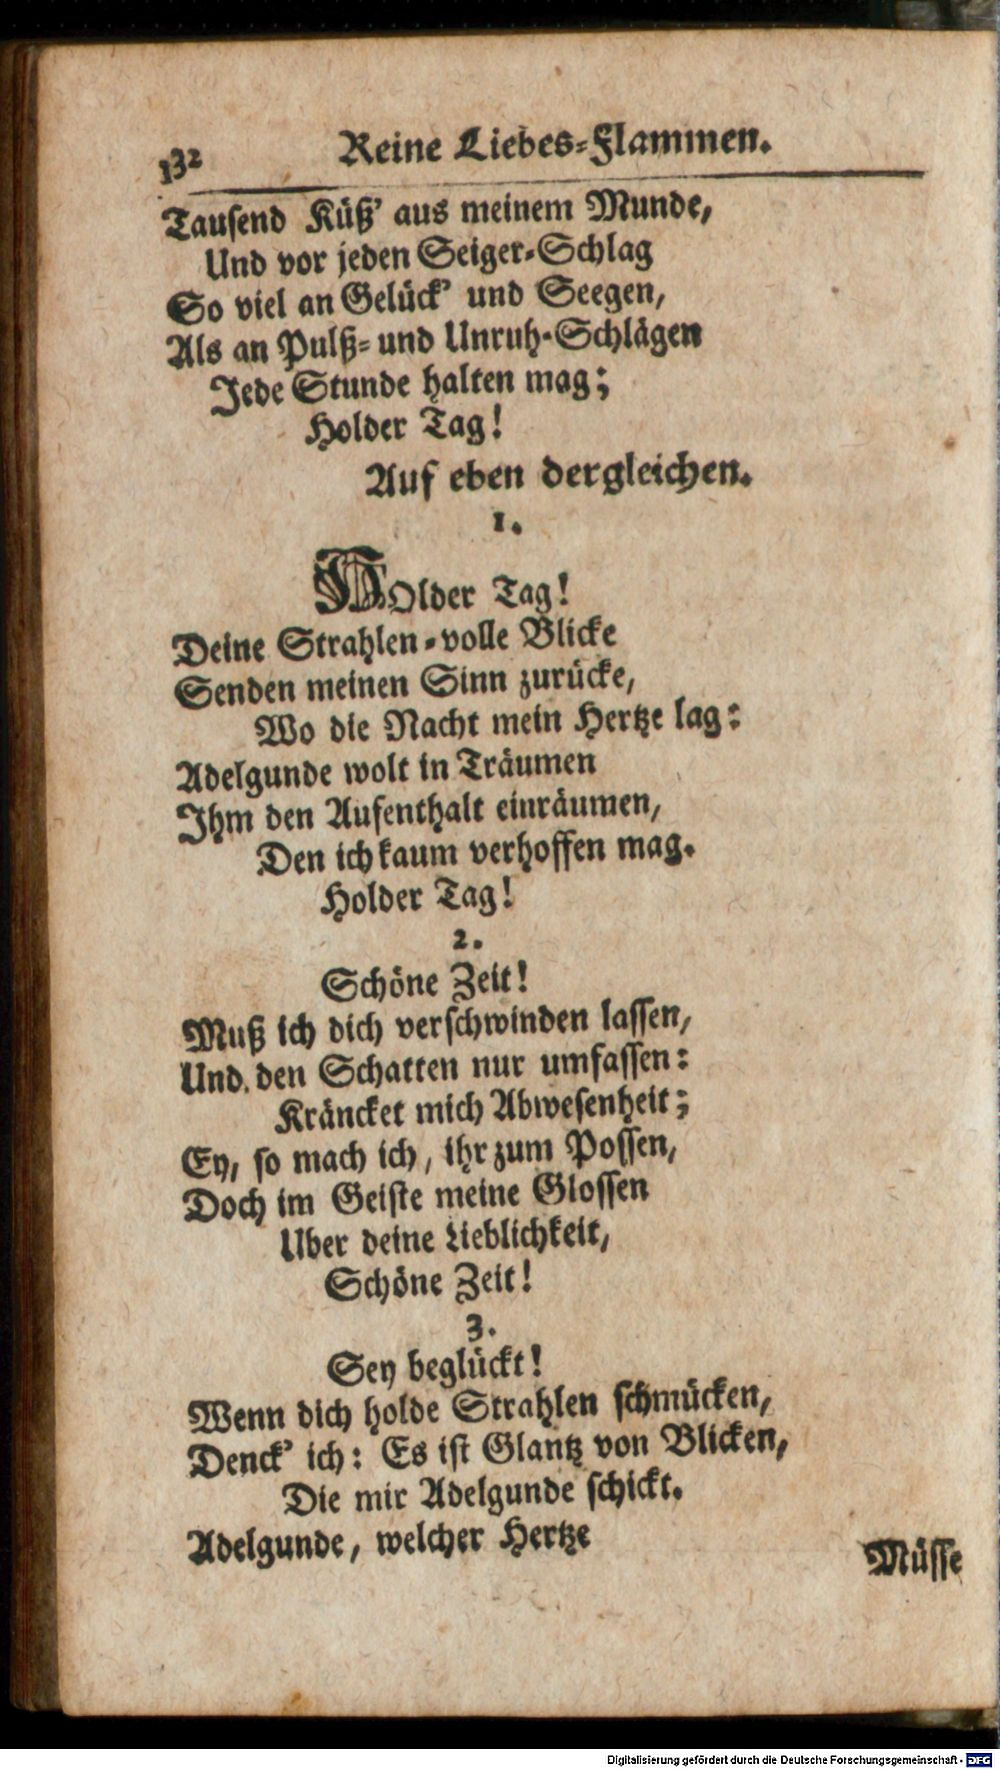 132 Reine Liebes-Flammen.
Tausend Küß' aus meinem Munde,
Und vor jeden Seiger-Schlag
So viel an Gelück' und Seegen,
Als an Pulß- und Unruh-Schlägen
Jede Stunde halten mag;
Holder Tag!
Auf eben dergleichen.
1.
HOlder Tag!
Deine Strahlen-volle Blicke
Senden meinen Sinn zurücke,
Wo die Nacht mein Hertze lag:
Adelgunde wolt in Träumen
Ihm den Aufenthalt einräumen,
Den ich kaum verhoffen mag.
Holder Tag!
2.
Schöne Zeit!
Muß ich dich verschwinden lassen,
Und den Schatten nur umfassen:
Kräncket mich Abwesenheit;
Ey, so mach ich, ihr zum Possen,
Doch im Geiste meine Glossen
Uber deine Lieblichkeit,
Schöne Zeit!
3.
Sey beglückt!
Wenn dich holde Strahlen schmücken,
Denck' ich: Es ist Glantz von Blicken,
Die mir Adelgunde schickt.
Adelgunde, welcher Hertze
Müsse
Digitalisierung gefördert durch die Deutsche Forschungsgemeinschaft - DFG